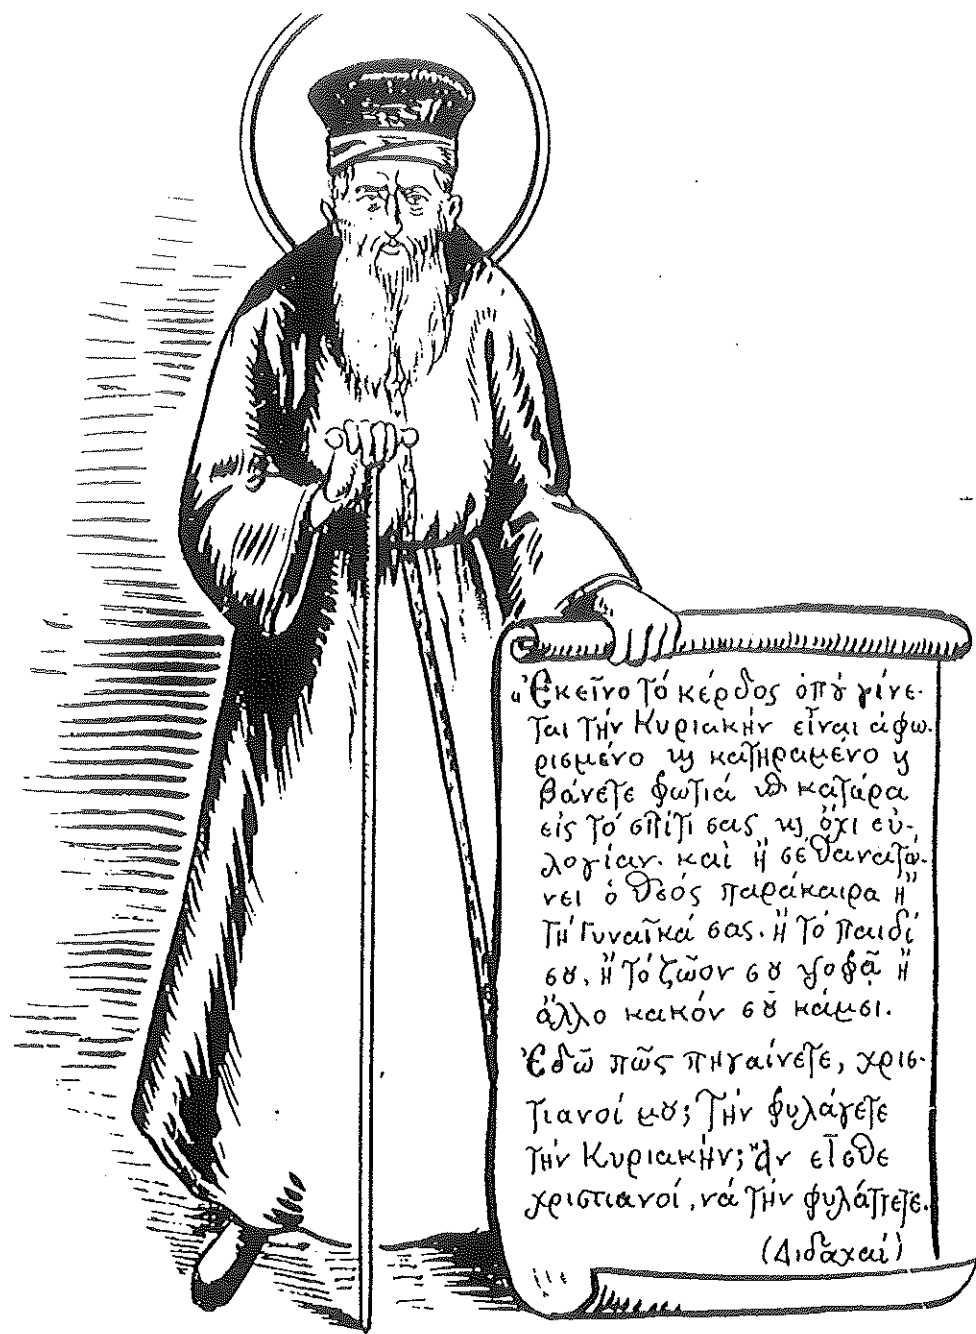 «Ἐκεῖνο τό κέρδος ὁπȣ́ γίνε-
ται τήν Κυριακήν εἶναι ἀφω-
ρισμένο ϗ κατηραμένο ϗ
βάνετε φωτιά ϗ κατάρα
εἰς τό σπίτι σας ϗ ὄχι εὐ-
λογίαν. καί ἤ σέ θανατώ-
νει ὁ θεός παράκαιρα ἤ
τή Γυναῖκά σας. ἤ τό παιδί
σȣ, ἤ τό ζῶον σȣ ψοφᾷ ἤ
ἄλλο κακόν σȣ͂ κάμει.
Ἐδῶ πῶς πηγαίνετε, χρισ-
τιανοί μȣ; τήν φυλάγετε
τήν Κυριακήν; Ἄν εἶσθε
χριστιανοί, νά τήν φυλάττετε.
(Διδαχαί)